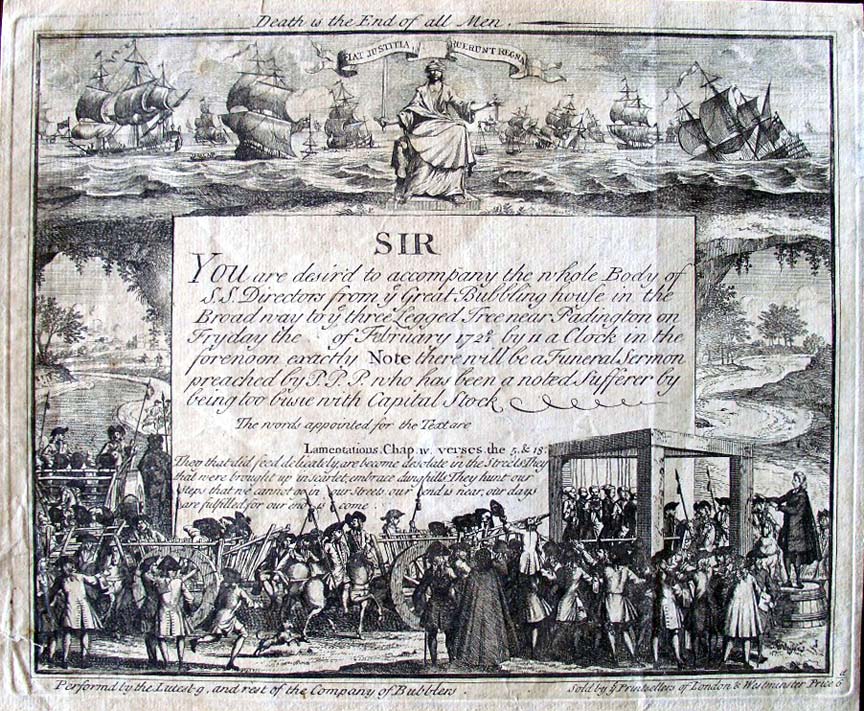 Death is the End of all Men.
FIAT JUSTITIA RUERUNT REGNA
SIR
You are desir'd to accompany the whole Body of
S.S. Directors from yͤ Great Bubbling house in the
Broad way to yͤ three Legged Tree near Padington on
Fryday the of February by 11 a Clock in the
forenoon exactly Note there will be a Funeral Sermon
preached by P.P.P. who has been a noted Sufferer by
being too busie with Capital Stock
The words appointed for the Text are
Lamentations. Chap. IV. verses the 5. & 18.
They that did feed delicately, are become desolate in the Streets They
that were brought up in scarlet, embrace dunghills They hunt our
Steps that we cannot go in our Streets, our end is near, our days
are fulfilled for our end is come.
Performd by the and rest of the Company of Bubblers.
Sold by yͤ Printsellers of London & Westminster Price 6ᵈ